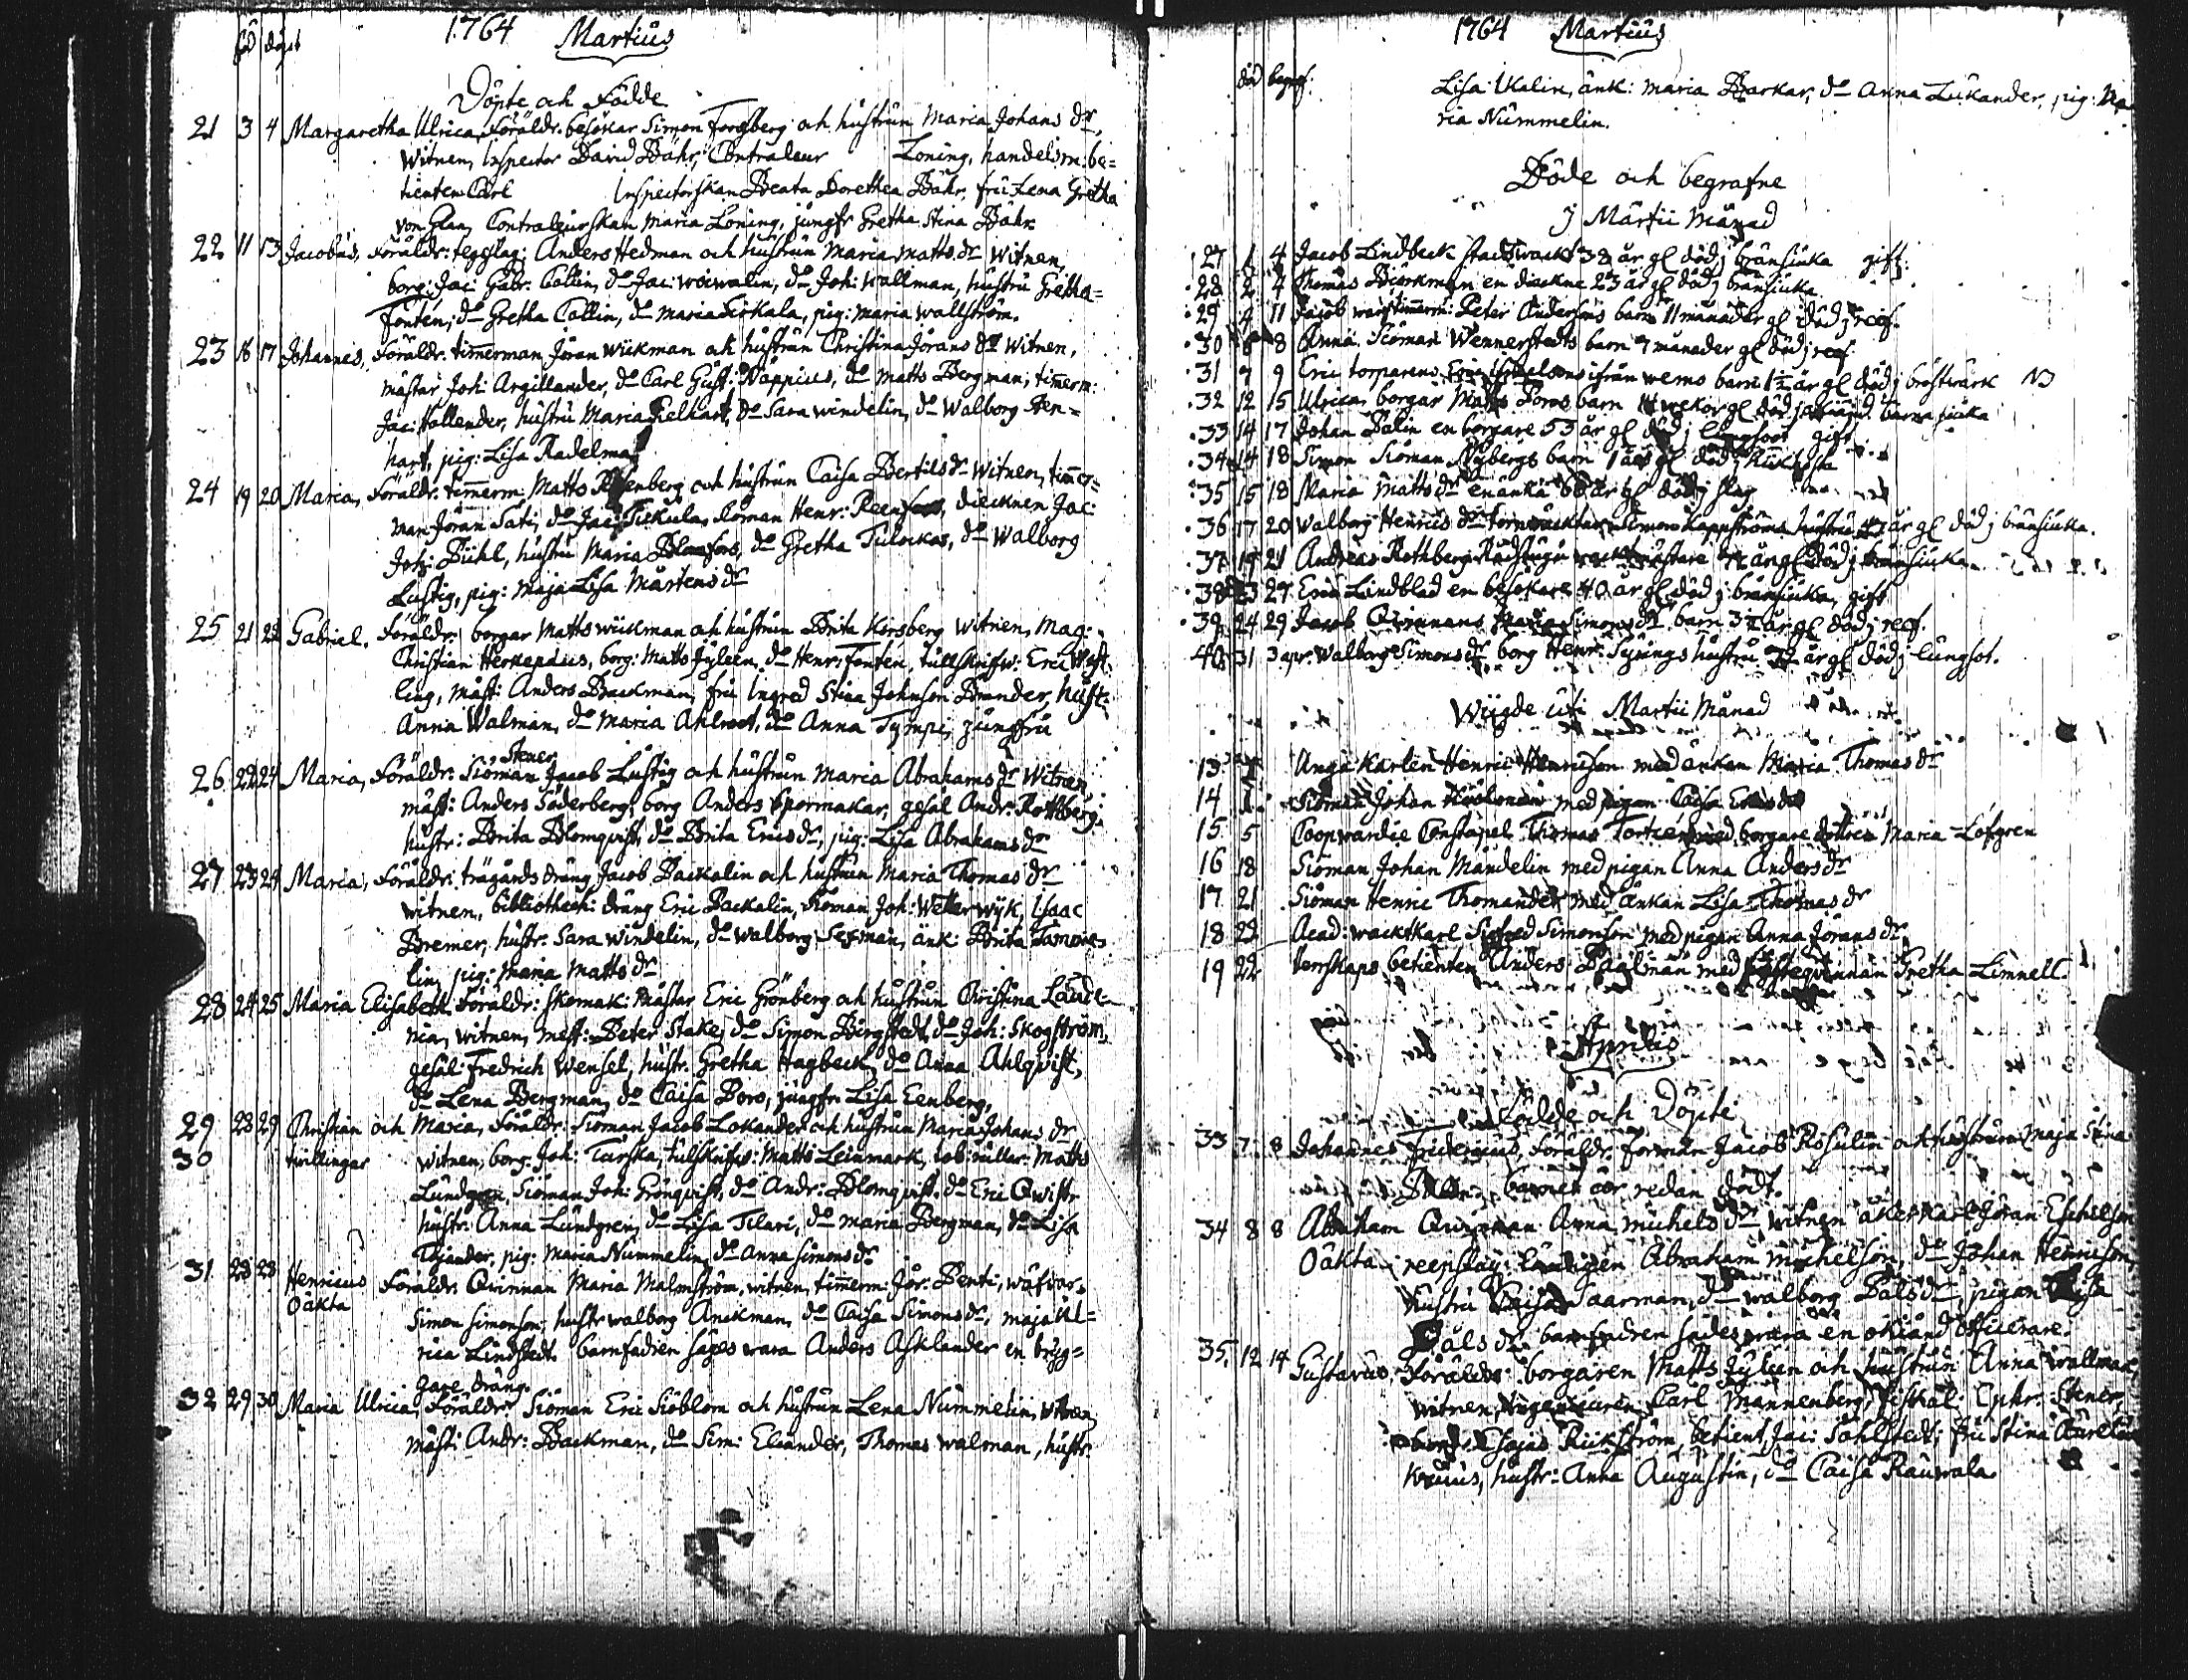 1764 Martius
föd döpt
Döpte och Födde
21 3 4 Margaretha Ulrica, Föräldr. besökar Simon Forsberg och hustrun Maria Johans dr,
Witnen, Inspector David Bähr, Contraleur Loning, handelsm: be=
tienten Carl Inspectorskan Beata Dorethea Bähr, fru Lena Gretha
von Glan, Contraleurskan Maria Loning, jungfr Gretha Stina Bähr.
22 11 13 Jacobus, Föräldr: tegelslag: Anders Hedman och hustrun Maria Matts dr Witnen,
borg: Jac: Gabr. Collin, do Jac: woiwalin, do Joh: Wallman, hustru Gretha
Fontén, do Gretha Collin, do Maria, pig: Maria Wallström.
23 16 17 Johannes, Föräldr. timmerman Jöran Wikman och hustrun Christina Jörans dr Witnen,
mästar Joh: Argillander, do Carl Gust: Nappius, do Matts Bergman, timmerm:
Jac: Hollender, hustru Maria Kielhart, do Sara Windelin, do Walborg Sten=
hart, pig: Lisa Radelma
24 19 20 Maria, Föräldr. timmerm. Matts och hustrun Caisa Bertils dr Witnen, timmer=
man Jöran Sati, do Jac:, Sioman Henr: Reenfors, dieknen Jac:
Joh: Bühl, hustru Maria Blomfors, do Gretha Tulockas, do Walborg
Lustig, pig: Maja Lisa Mårtens dr
25 21 22 Gabriel. Föräldr. borgar Matts Wikman och hustrun Brita Korsberg Witnen, Mag:
Christian Herkepæus, borg: Matts Jyleen, do Henr: Fontén, tullskrifw: Eric West=
ling, mäst: Anders Backman, fru Ingred Stina Johnson Brander, hust:
Anna Walman, do Maria Ahlroot, do Anna Tympi, jungfru
Stener
26 22 24 Maria, Föräldr: Sioman Jacob Lustig och hustrun Maria Abrahams dr Witnen,
mäst: Anders Söderberg, borg Anders Spormakar, gesäl Andr. Rothberg,
hustr: Brita Blomqvist, do Brita Erics dr, pig: Lisa Abrahams dr
27 23 24 Maria, Föräldr. trägårds dräng Jacob Backalin och hustrun Maria Thomas dr
witnen, bibliothech: dräng Eric Backalin, Sioman Joh: Wetterwijk, Isaac
Bremer, hustr: Sara Windelin, do Walborg Sexman, änk: Brita Tamme=
lin, pig: Maria Matts dr
28 24 25 Maria Elisabeth, Föräldr: skomak: mästar Eric Grönberg och hustrun Christina Laude=
nia, witnen, mest: Peter Stake, do Simon Bergstedt, do Joh: Skogström,
gesäl: Fredrich Wensel, hustr: Gretha Hagbeck, do Anna Ahlqvist,
do Lena Bergman, do Caisa Boro, jungfr Lisa Eenberg,
29 28 29 Christian och Maria, Föräldr: Sioman Jacob Lokander och hustrun Maria Johans dr
30 twillingar witnen, borg: Joh: Turska, tulskrifw: Matts Leinmark, tob: rullar: Matts
Lundgren, Sioman Joh: Grönqvist, do Andr: Blomqvist, do Eric Qwist,
hustr: Anna Lundgren, do Lisa Tilari, do Maria Bergman, do Lisa
Thiander, pig: Maria Nummelin, do Anna Simons dr
31 28 28 Henricus Föräldr. Qvinnan Maria Malmström, witnen, timmerm: Jör: Benti, wäfwar
Oäkta Simon Simonson, hustr Walborg Anckman, do Caisa Simons dr, Maja Ul=
rica Lindstedt. barnfadren säges wara Anders Asklander en bryg=
gare dräng.
32 29 30 Maria Ulrica, Föräldr. Sioman Eric Siöblom och hustrun Lena Nummelin, Witnen,
mäst: Andr: Backman, do Sim: Elander, Thomas Walman, hustr.
1764 Martius
död begraf:
Lisa Ukalin, änk: Maria Barkar, do Anna Lukander, pig: Ma
ria Nummelin.
Döde och begrafne
j Martii Månad
27 1 4 Jacob Lindbeck stadswackt 38 år gl död j bränsiuka gift
28 2 4 Thomas Biörkman en dieckne 23 år gl död j bränsiuka
29 4 11 Jacob warftimmerm: Peter Andersons barn 11 månader gl död j reef.
30 6 8 Anna, Sioman Wennerstedts barn 7 månader gl död j reef.
31 7 9 Eric torparens ifrån barn 1½ år gl död j bröstwärk NB
32 12 15 Ulrica, borgar Matts Boros barn 14 wekor gl död barna siuka
33 14 17 Johan Dalin en borgare 53 år gl död j lungsoot gift
34 14 18 Simon Sioman Nybergs barn 1 år gl död j kikhosta
35 15 18 Maria Matts dr en änka 60 år gl död j slag
36 17 20 Walborg Henrics dr tornwäcktar Simon Kappströms hustru år gl död j bränsiuka.
37 19 21 Andreas Rothberg Rådstugu wacktmästare 72 år gl död j bränsiuka
38 23 27 Eric Lindblad en besökare 40 år gl död j bränsiuka, gift
39 24 29 Jacob Qvinnans Maria Simons dr barn 3½ år gl död j reef.
40 31 3 apr. Walborg Simons dr borg Henr. Synings hustru år gl död j lungsot.
Wigde uti Martii Månad
13 1 Unga Karlen Henric Henricson med änkan Maria Thomas dr
14 1 Sioman Johan med pigan Caisa Erics dr
15 5 Coopwardie Constapel Thomas med borgare dottren Maria Löfgren
16 18 Sioman Johan Mandelin med pigan Anna Anders dr
17 21 Sioman Henric Thomander med änkan Lisa Thomas dr
18 22 Acad: wacktkarl Sigfred Simonson med pigan Anna Jörans dr
19 22 betienten Anders Dahlman med Gretha Limnell
Aprilis
Födde och Döpte
33 7 8 Johannes Fridericus, Föräldr. forman Jacob Rosulin och hustrun Maja Stina
barnet är redan dödt.
34 8 8 Abraham Qvinnan Anna Michels dr witnen åkerkarl Jöran Eschelson
Oäkta reepslag: Abraham Michelson, do Johan Henricson,
hustru Caisa Saarman, do Walborg Påls dr, pigan Lisa
Påls dr barnfadren sades wara en okiänd officerare.
35 12 14 Gustavus, Föräldr: borgaren Matts Jyleen och hustrun Anna Wallman,
witnen, Ingenieuren Carl Mannenberg, fiskal: Ephr. Stener,
Esajas Rikström, betient Jac: Sahlstedt, fru Stina
hustr: Anna Augustin, do Caisa Rauwala